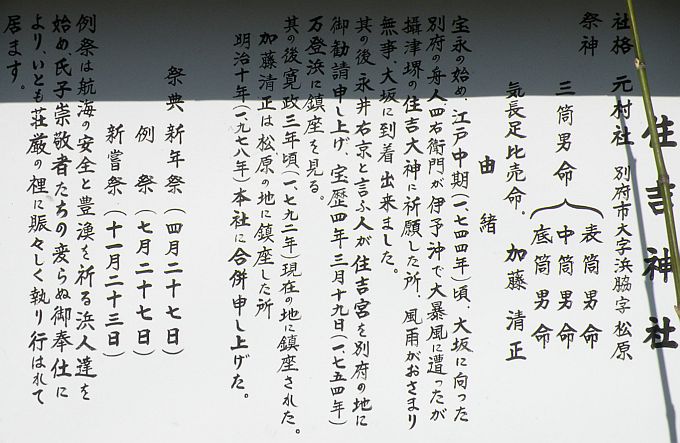 住吉神社
社格 元村社 別府市大字浜脇字松原
祭神
三筒男命 表筒男命
中筒男命
底筒男命
気長足比売命。 加藤清正
由緒
宝永の始め、江戸中期(一七四四年)頃、大坂に向った
別府の舟人四右衛門が伊予沖で大暴風に遭ったが
攝津堺の住吉大神に祈願した所、風雨がおさまり
無事、大坂に到着出来ました。
其の後永井右京と言ふ人が住吉宮を別府の地に
御勧請申し上げ、宝歴四年三月十九日(一七五四年)
万登浜に鎮座を見る。
其の後寛政三年頃(一、七九二年)現在の地に鎮座された。
加藤清正は松原の地に鎮座した所
明治十年(一九七八年)本社に合併申し上げた。
祭典 新年祭(四月二十七日)
例祭(七月二十七日)
新嘗祭(十一月二十三日)
例祭は航海の安全と豊漁を祈る浜人達を
始め、氏子崇敬者たちの変らぬ御奉仕に
より、いとも荘厳の裡に賑々しく執り行はれて
居ます。